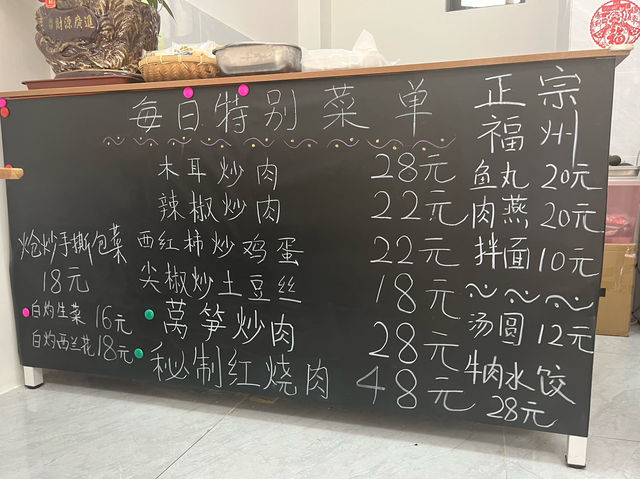 財源廣進
福
每日特别菜单
木耳炒肉 28元
辣椒炒肉 22元
西红柿炒鸡蛋 22元
尖椒炒土豆丝 18元
莴笋炒肉 28元
秘制红烧肉 48元
炝炒手撕包菜
18元
白灼生菜 16元
白灼西兰花 18元
正宗
福州
鱼丸 20元
肉燕 20元
拌面 10元
汤圆 12元
牛肉水饺
28元